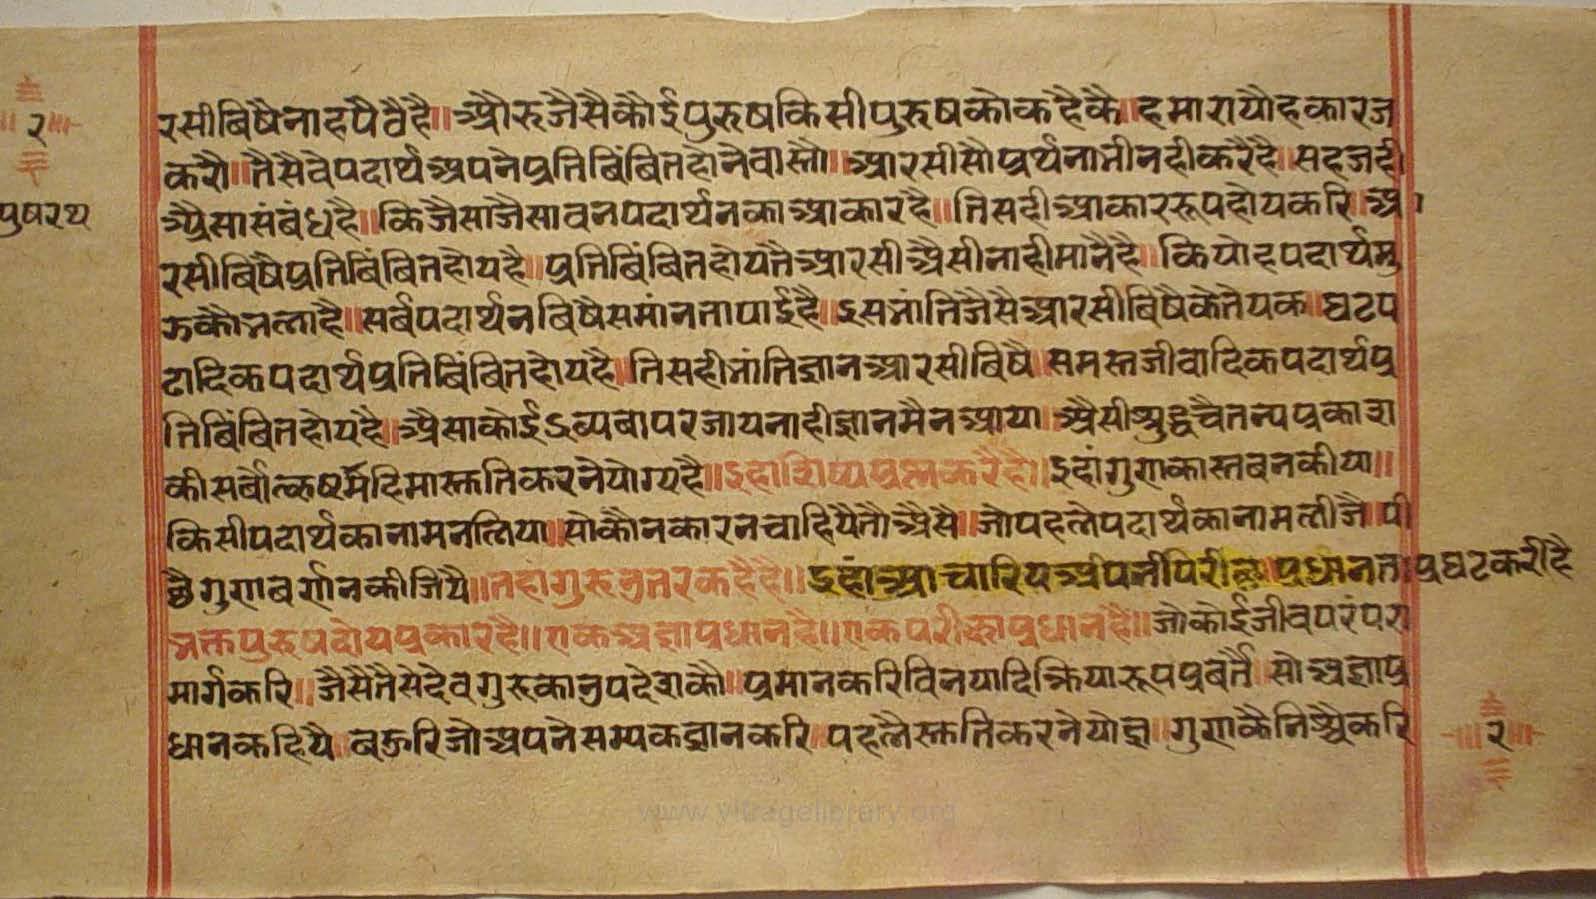 २
पुषरथ
रसीबिषैनाहपैवैहै॥औरुजैसैकोईपुरुषकिसीपुरुषकोकहैकै॥हमारायौहकारज
करौ॥तैसैवेपदार्थअपनेप्रतिबिंबितहोनेवास्तौ॥आरसीसौप्रर्थनाभीनहीकरैहै॥सहजही
अैसासंबंधहै॥किजैसाजैसावनपदार्थनकाआकारहै॥तिसहीआकाररूपहोयकरि॥आ
रसीबिषैप्रतिबिंबितहोयहै॥प्रतिबिंबितहोयतैआरसीअैसीनाहीमानैहै॥कियोहपदार्थमु
ऊकौभलाहै॥सर्बपदार्थनबिषैसमांनतापाईहै॥इसभांतिजैसैआरसीबिषैकेतेयक॥घटप
टादिकपदार्थप्रतिबिंबितहोयहै॥तिसहीभांतिज्ञानआरसीबिषै॥समस्तजीवादिकपदार्थप्र
तिबिंबितहोयहै॥अैसाकोईद्रव्यबापरजायनाहीज्ञानमैनआया॥अैसीशुद्धचैतन्यप्रकाश
कीसर्बोत्कष्टमहिमास्तुतिकरनेयोग्यहै॥इहाशिष्यप्रश्नकरैहै॥इहांगुणकास्तबनकीया॥
किसीपदार्थकानामनलिया॥सोकौनकारनचाहियैतौअैसै॥जोपहलेपदार्थकानामलीजै॥पी
छैगुणबर्णनकीजियै॥तहांगुरुउतरकहैहै॥इहांआचारियअपनीपरीक्षाप्रधानताप्रघटकरीहै
भक्तपुरुषदोयप्रकारहै॥एकअज्ञाप्रधानहै॥एकपरीक्षाप्रधानहै॥जोकोईजीवपरंपरा
मार्गकरि॥जैसैतैसेदेवगुरुकाउपदेशकौ॥प्रमानकरिविनयादिक्रियारूपप्रबर्तै॥सोअज्ञाप्र
धानकहियै॥बहुरिजोअपनेसम्यकज्ञानकरि॥पहलैस्तुतिकरनेयोज्ञ॥गुणकैनिश्चैकरि
२
www.vitragelibrary.org